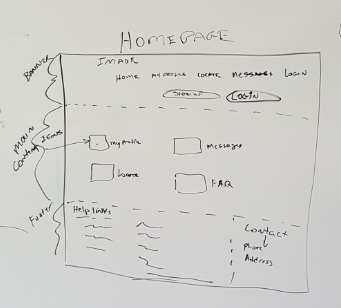 HOMEPAGE
BANNER
IMAGE
HOME MY PROFILE LOCATE MESSAGES LOGIN
SIGN UP LOGIN
MAIN
Content
Icons
my profile
Messages
Locate
FAQ
Footer
Help links
Contact
phone
Address